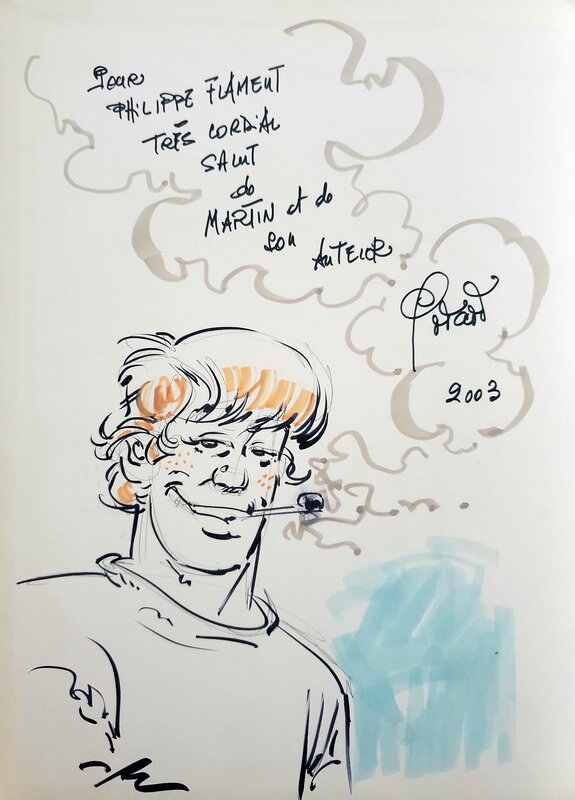 Pour
PHILIPPE FLAMENT
TRÈS CORDIAL
SALUT
de
MARTIN et de
son AUTEUR
2003